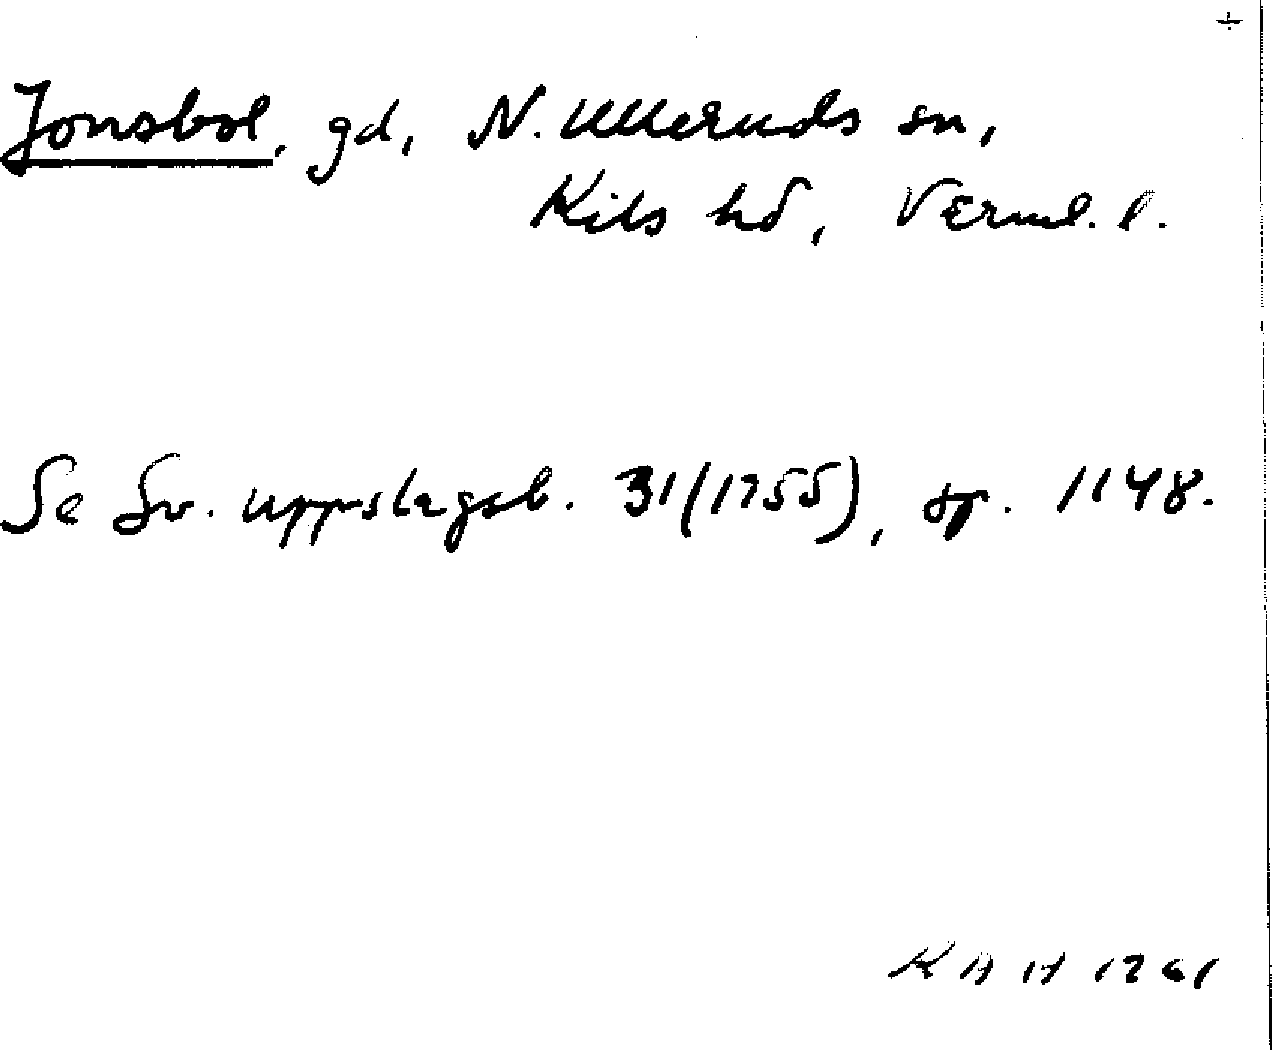 Jonsbol, gd, N. Ulleruds sn,
Kils hd, Värml. l.
Se Sv. uppslagsb. 31(1955), sp. 1148.
KAH 1961